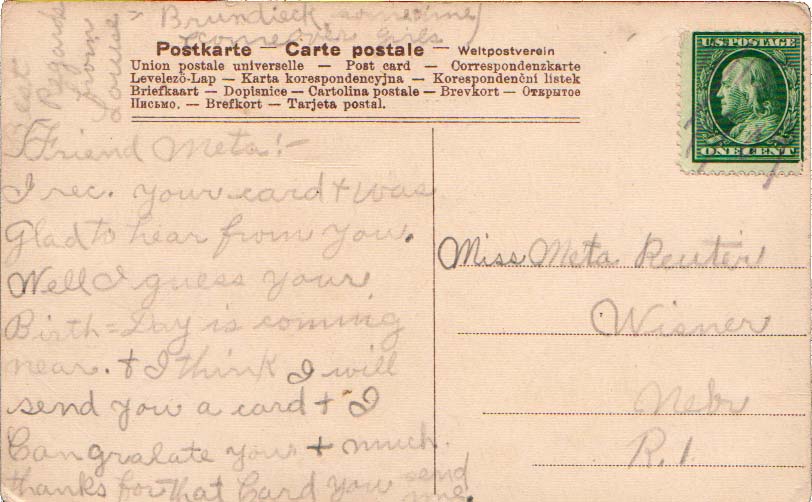 Postkarte — Carte postale — Weltpostverein
Union postale universelle — Post card — Correspondenzkarte
Levelező-Lap — Karta korespondencyjna — Korespondenční listek
Briefkaart — Dopisnice — Cartolina postale — Brevkort — Открытое
Письмо. — Brefkort — Tarjeta postal.
U.S. POSTAGE
ONE CENT
Friend Meta!-
I rec. your card + was
Glad to hear from you.
Well I guess your
Birth=Day is coming
near. + I think I will
send you a card + I
Congralate you + much.
thanks for that Card you send
me.
Best
Regards
from
Louise
Brundieck, sometime
come over girls
Miss Meta Reuter
Wisner
Nebr
R.1